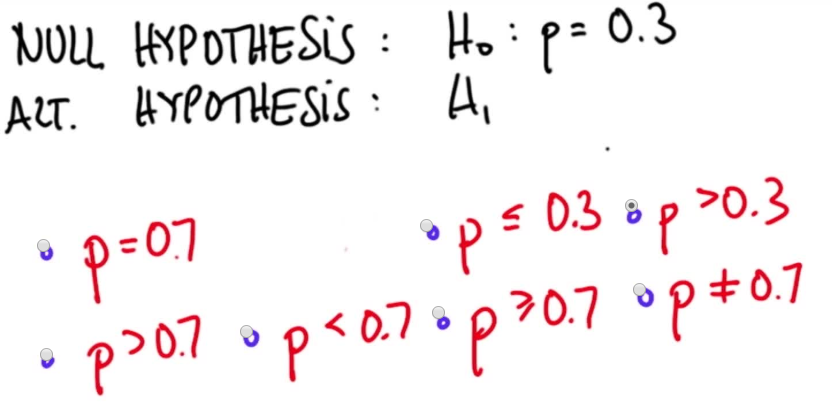 NULL HYPOTHESIS : H₀ : p = 0.3
ALT. HYPOTHESIS : H₁
p = 0.7
p ≤ 0.3
p > 0.3
p > 0.7
p < 0.7
p ≥ 0.7
p ≠ 0.7